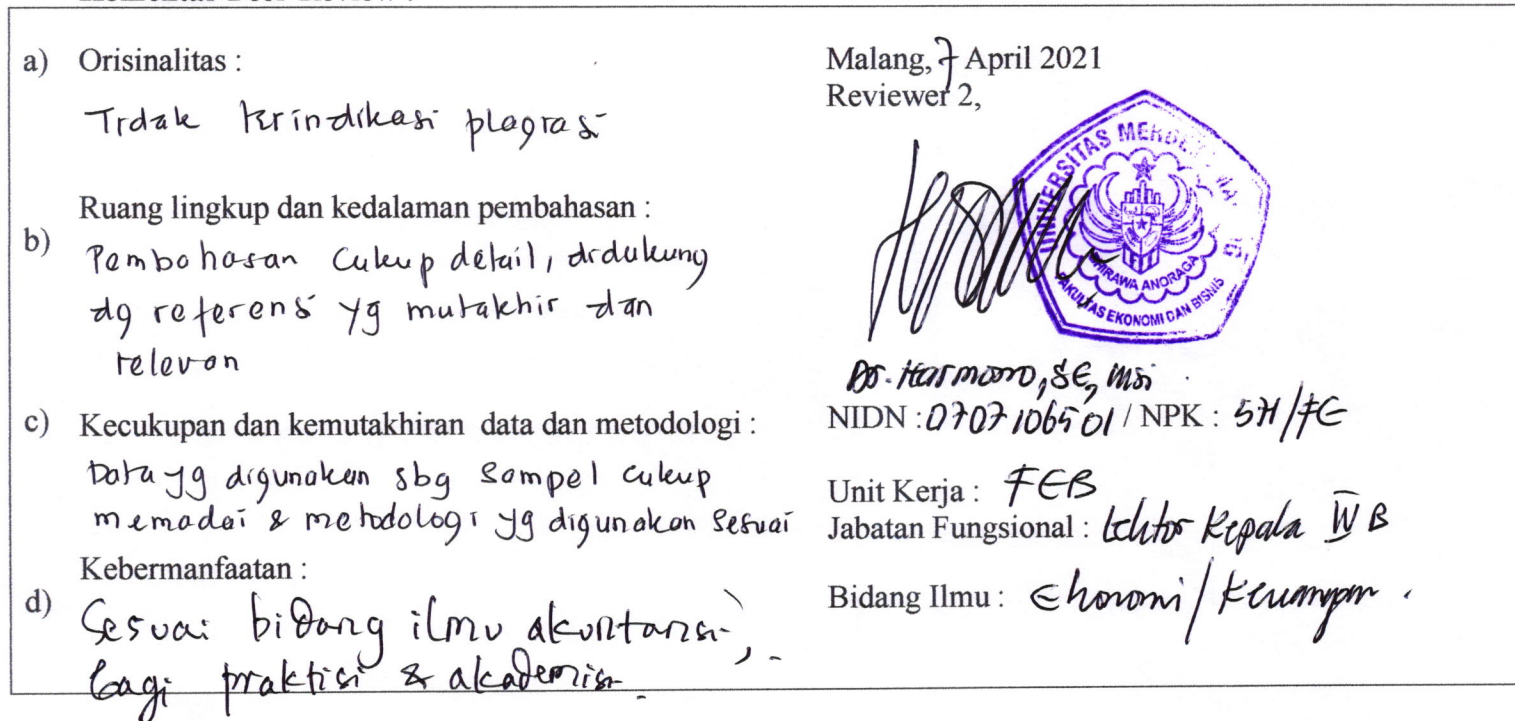 a) Orisinalitas :
Tidak terindikasi plagiasi
Ruang lingkup dan kedalaman pembahasan :
b) Pembahasan cukup detail, didukung
dg referensi yg mutakhir dan
relevan
c) Kecukupan dan kemutakhiran data dan metodologi :
Data yg digunakan sbg sampel cukup
memadai & metodologi yg digunakan sesuai
Kebermanfaatan :
d) Sesuai bidang ilmu akuntansi,
bagi praktisi & akademisi
Malang, 7 April 2021
Reviewer 2,
UNIVERSITAS
WIRAWA ANORAGA
FAKULTAS EKONOMI DAN BISNIS
Dr. Harmono, SE, MSi
NIDN : 0707106501 / NPK : /FE
Unit Kerja : FEB
Jabatan Fungsional : Lektor Kepala IV B
Bidang Ilmu : Ekonomi / Keuangan .